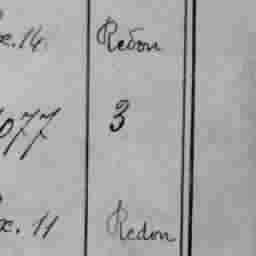 æ. 14 Redon
077 3
æ. 11 Redon